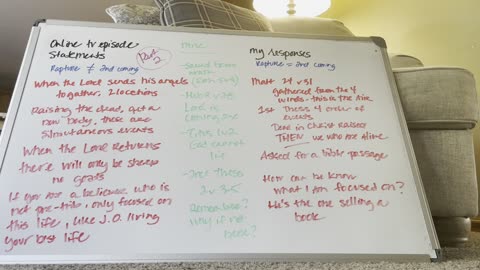 Online tv episode
Statements
Part
2
Rapture ≠ 2nd coming
When the Lord sends his angels
to gather, 2 locations
Raising the dead, get a
new body, these are
simultaneous events
When the Lord returns
there will only be sheep
no goats
If you are a believer who is
not pre-trib, only focused on
this life, like J.O. living
your best life
Misc
Lord is
God cannot
lie
Remember?
Why if not
book?
My responses
Rapture = 2nd coming
Matt 24 v 31
gathered from the 4
winds - this is the
1st Thess 4 order of
events
Dead in Christ raised
THEN we who are alive
Asked for a bible passage
How can he know
what I am focused on?
He's the one selling a
book